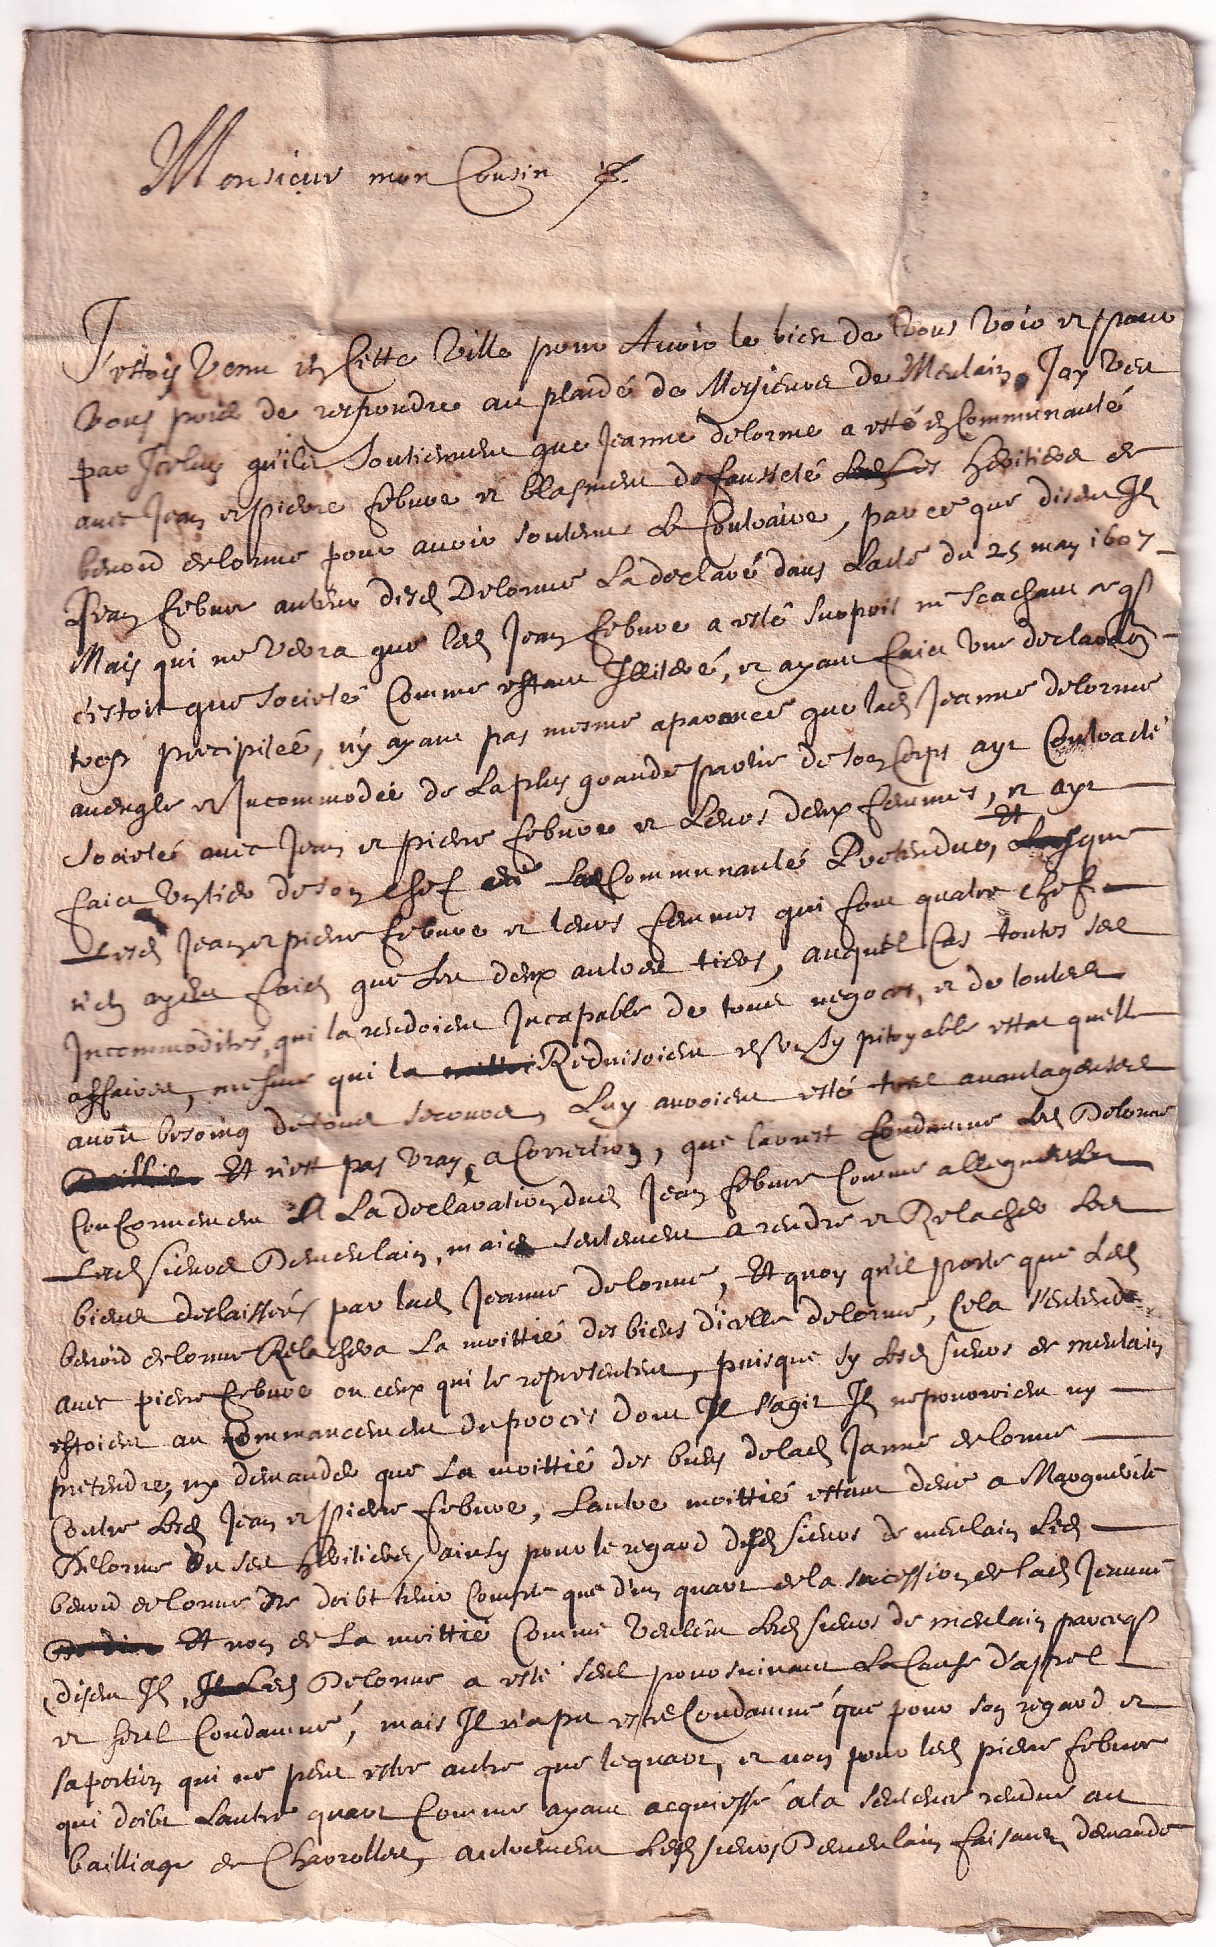 Monsieur mon Cousin
J'estois venu en Cette Ville pour Avoir le bien de Vous Voir et pour
Vous prier de respondre au plaidé de Messieurs de Meulain, Jay veu
par Iceluy qu'ils soutiennent que Jeanne delorme a esté en Communauté
avec Jean et pierre febvre et blasment de fausseté les heritiers de
benoid delorme pour avoir soutenu le Contraire, parce que disent Ils
Jean febvre auteur desd Delorme La declaré dans Lacte du 25 may 1607
Mais qui ne verra que led Jean febvre a esté surpris ne scachant ce q
c'estoit que societé Comme estant Illiteré, et ayant faict une declaraon
trop precipiteé, n'y ayant pas mesme aparance que lad Jeanne delorme
aveugle et Incommodée de La plus grande partie de son Corps ayt Contracté
societé avec Jean et pierre febvre et Leurs deux femmes, et ayt
faict un tier de son chef en La Communauté Pretendue, Et que
Lesd Jean et pierre febvre et leurs femmes qui font quatre chefs
n'en ayent faict que les deux autres tiers, auquel Cas toutes ses
Incommodités, qui la rendoient Incapable de tout negoces, et de toutes
affaires, qui la Reduisoient en un sy pitoyable estat quelle
avoit besoing de tout secours, Luy auroient esté tres avantageuses
Et n'est pas vray, a Correction, que larrest Condamne led Delorme
Conformement A La declaration dud Jean febvre Comme alleguent
Lesd sieurs Demeulain, mais seulement a rendre et Relacher les
biens delaissés par lad Jeanne delorme, Et quoy qu'il porte que Led
benoid delorme Relachera La moittié des biens d'icelle delorme, Cela s'entend
avec pierre febvre ou ceux qui le representent, puisque sy lesd sieurs de meulain
estoient au Commancement du proces dont Il s'agit Ils ne pouvoient ny
pretendre, ny demander que La moittié des biens de lad Janne delorme
Contre lesd Jean et pierre febvre, Lautre moittié estant deue a Marguerite
Delorme ou ses heritiers, ainsy pour le regard desd sieurs de meulain Led
benoid delorme ne doibt tenir Compte que d'un quart de la succession de lad Jeanne
Et non de La moittié Comme veulent lesd sieurs de meulain parceq
disent Ils, Led Delorme a esté seul poursuivant La Cause d'appel
et seul Condamné, mais Il n'a pu estre Condamné que pour son regard et
sa portion qui ne peut estre autre que le quart, et non pour led pierre febvre
qui doibt Lautre quart Comme ayant acquiessé a la sentence rendue au
bailliage de Charrolles, autrement Lesd sieurs Demeulain faisant demande